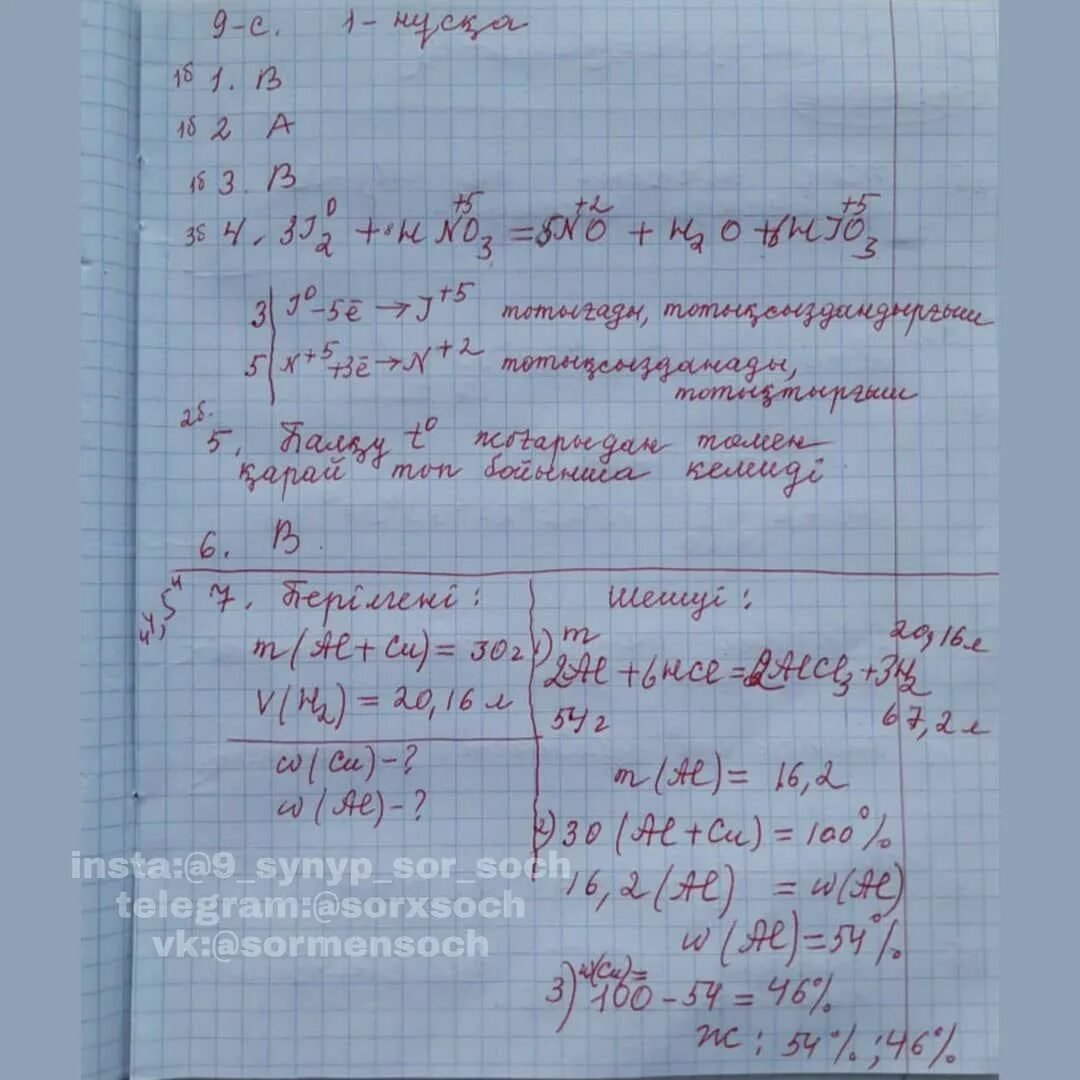 9-с. 1-нұсқа
1б 1. В
1б 2 А
1б 3. В
3б 4. 3J₂⁰ + HN⁺⁵O₃ = 5N⁺²O + H₂O + 6HJ⁺⁵O₃
3 | J⁰ - 5ē → J⁺⁵ тотығады, тотықсыздандырғыш
5 | N⁺⁵ + 3ē → N⁺² тотықсызданады,
тотықтырғыш
2б. 5. Балқу t⁰ жоғарыдан төмен
қарай топ бойынша кемиді
6. В.
7. Берілгені:
m(Al+Cu) = 30г
V(H₂) = 20,16 л
w(Cu) - ?
w(Al) - ?
Шешуі:
1) m 20,16л
2Al + 6HCl = 2AlCl₃ + 3H₂
54г 67,2л
m(Al) = 16,2
2) 30 (Al+Cu) = 100%
16,2 (Al) = w(Al)
w(Al) = 54%
w(Cu)=
3) 100 - 54 = 46%
Ж: 54%; 46%
insta:@9_synyp_sor_soch
telegram:@sorxsoch
vk:@sormensoch